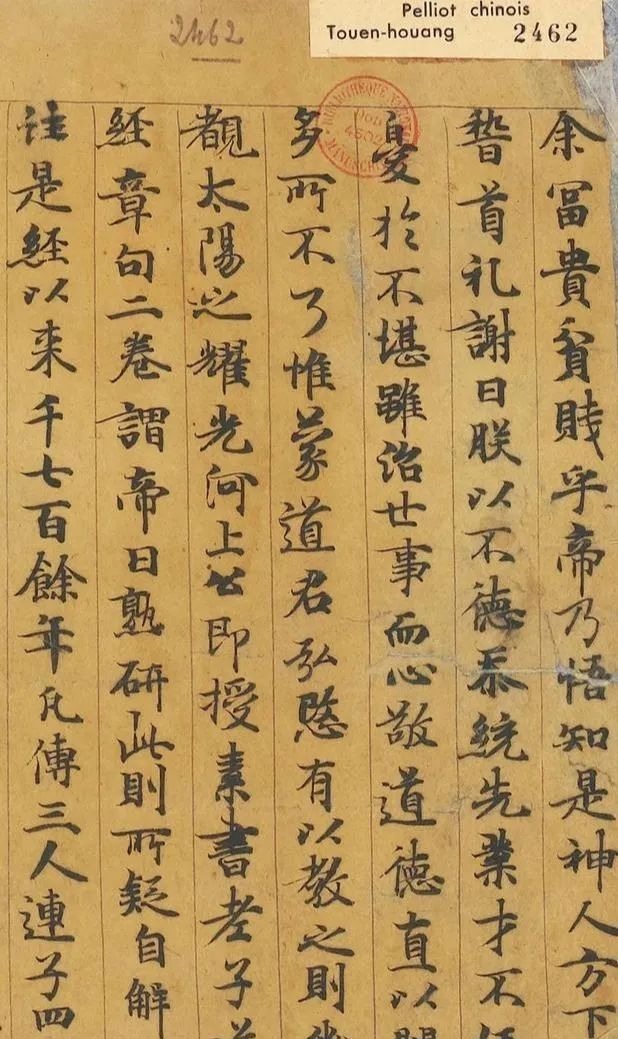 Pelliot chinois
Touen-houang 2462
2462
余冨貴貧賤乎帝乃悟知是神人方下
稽首礼謝曰朕以不德忝統先業才不
憂於不堪雖治世事而心敬道德直以
多所不了惟蒙道君弘愍有以教之則
覩太陽之耀光河上公即授素書老子
經章句二卷謂帝曰熟研此則所疑自解
註是經以来千七百餘年凡傳三人連子四